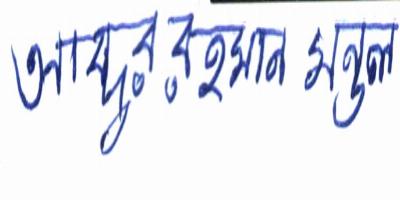 আব্দুর রহমান মন্ডল